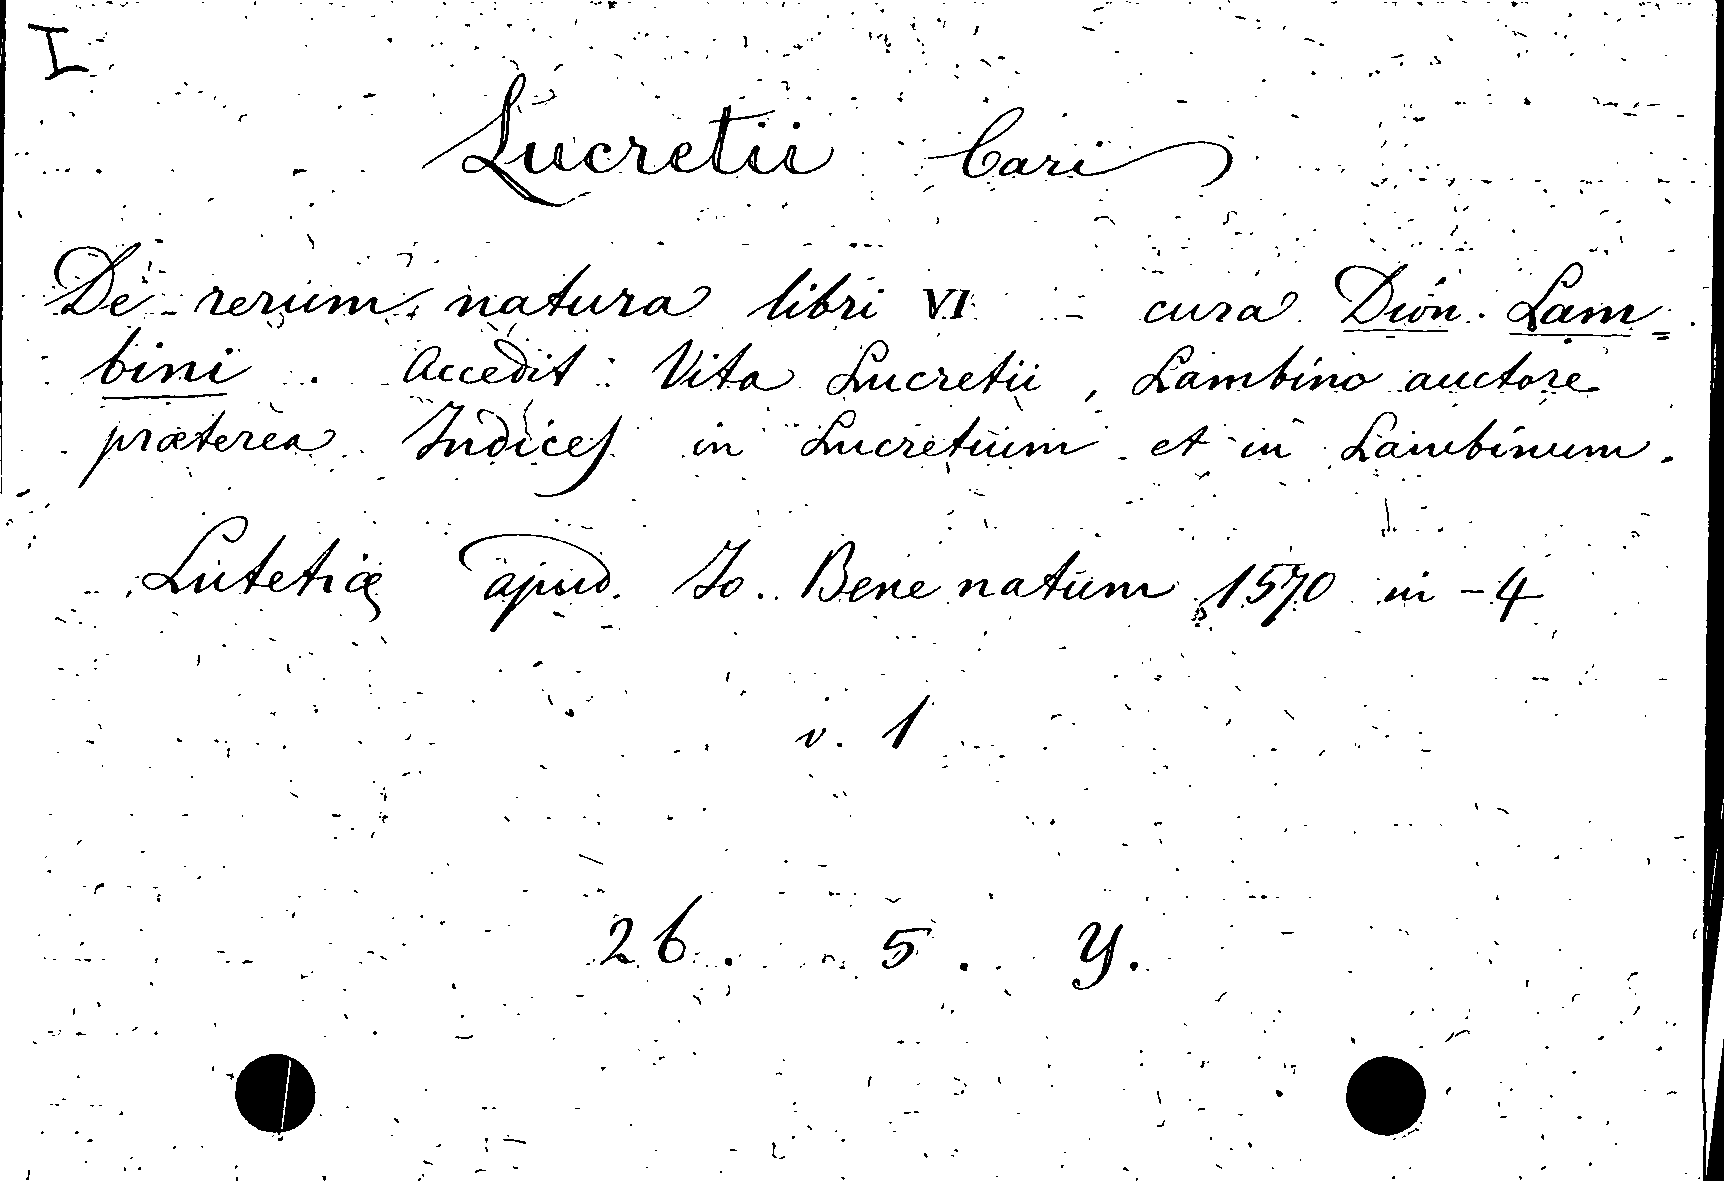 I
Lucretii Cari
De rerum natura libri VI - cura Dion. Lam=
bini. Accedit: Vita Lucretii, Lambino auctore
præterea Indices in Lucretium et in Lambinum.
Lutetiæ apud. Io. Bene natum 1570 in-4
v. 1
26. 5. Y.